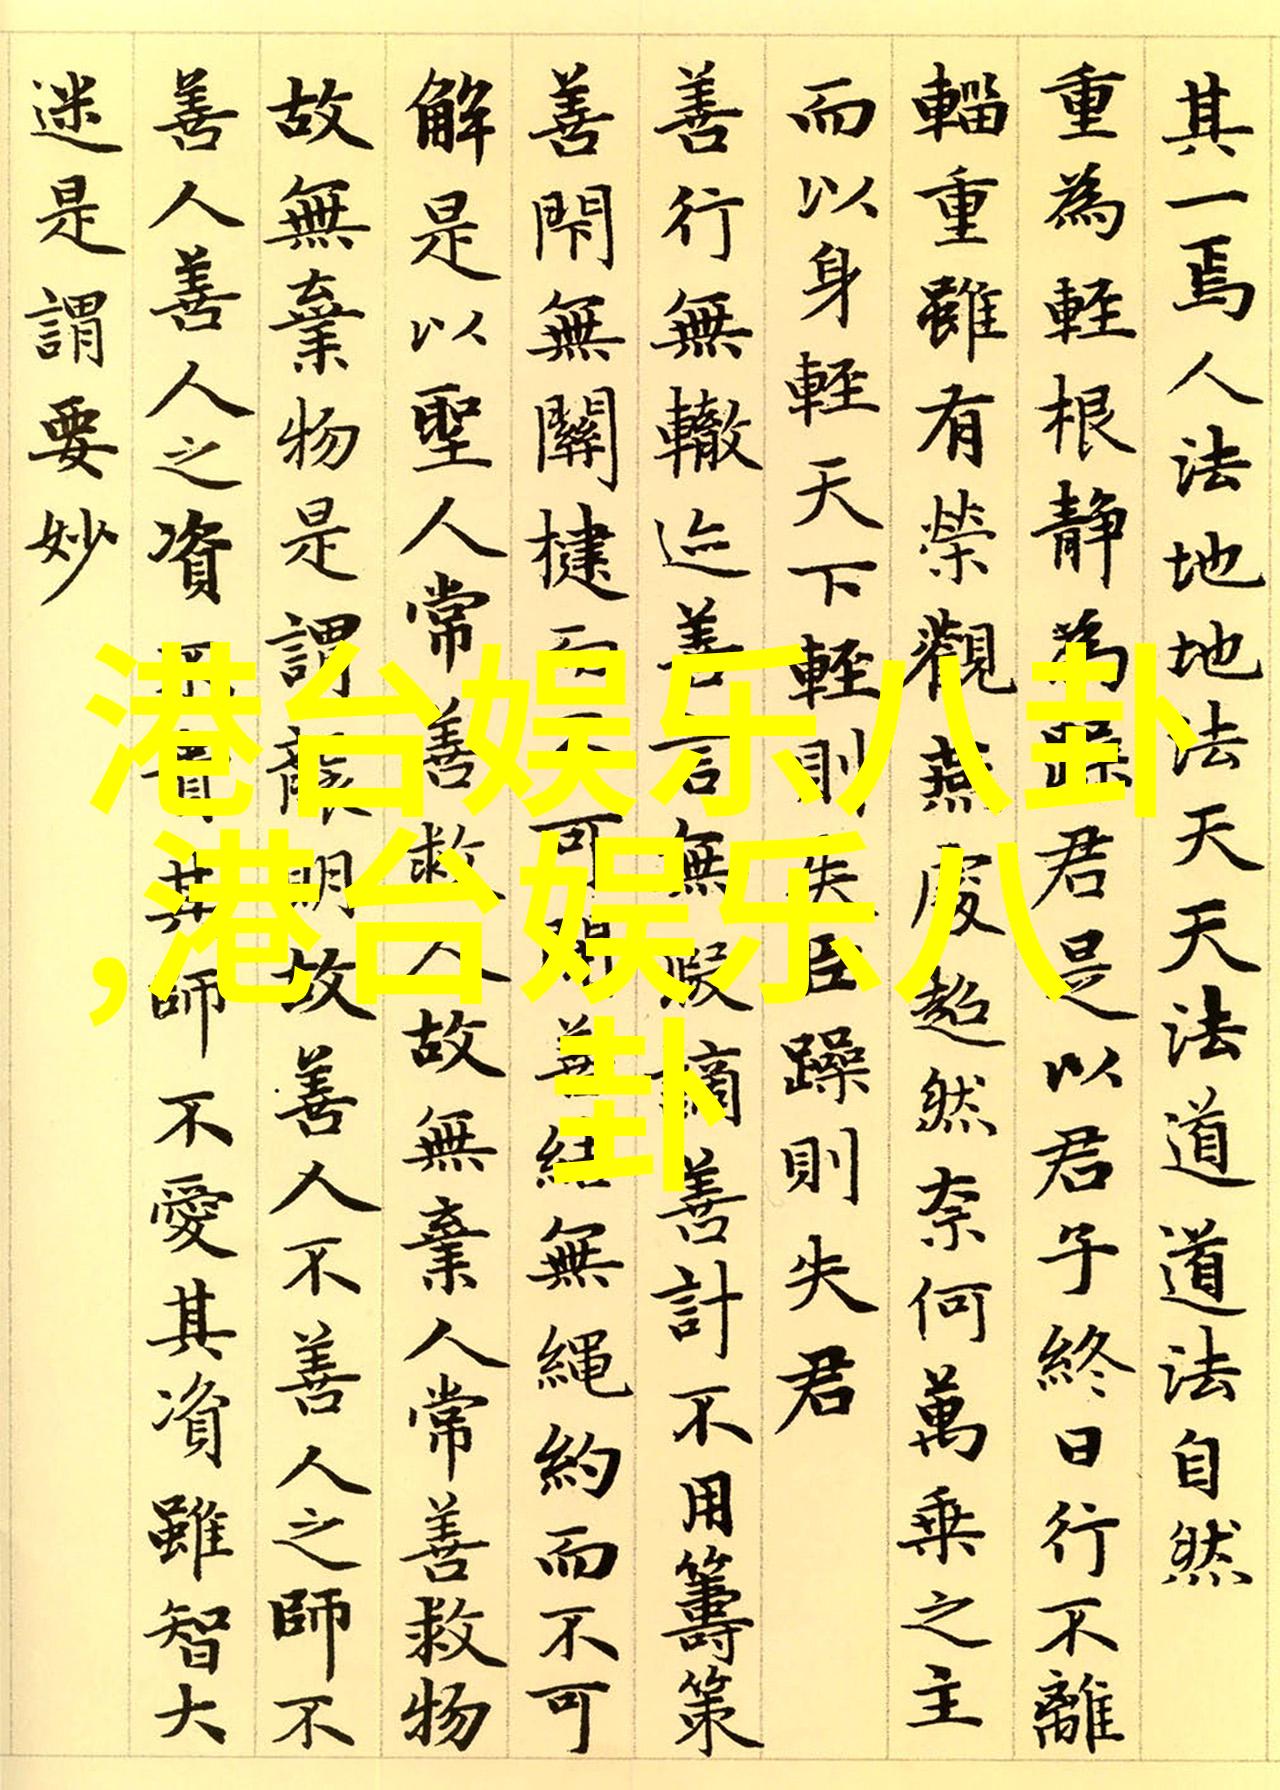 其一焉人法地地法天天法道道法自然
重為輕根静為躁君是以君子終日行不離
輜重雖有榮觀燕處超然奈何萬乘之主
而以身輕天下輕則失臣躁則失君
善行無轍迹善言無瑕謫善計不用籌策
善閇無關楗而不可開善結無繩約而不可
解是以聖人常善救人故無棄人常善救物
故無棄物是謂襲明故善人不善人之師不
善人善人之資不貴其師不愛其資雖智大
迷是謂要妙
港台娱乐八卦
,港台娱乐八
卦